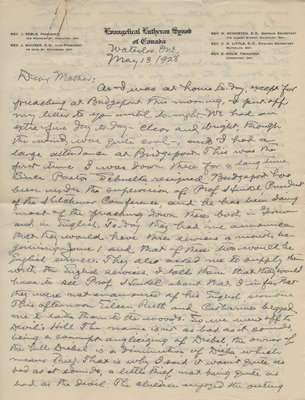 REV. J. REBLE, PRESIDENT
REV. J. MAURER, D.D., VICE-PRESIDENT
Evangelical Lutheran Synod
of Canada
REV. H. SCHORTEN, D.D., GERMAN SECRETARY
REV. C. H. LITTLE, D.D., ENGLISH SECRETARY
REV. E. HOLM, TREASURER
Waterloo, Ont.
May 13 1928
Dear Mother:
As I was at home to-day, except for
preaching at Bridgeport this morning, I put off
my letter to you until to-night. We had an
extra fine day to-day - clear and bright, though
the wind was quite cool -, and I had a
large attendance at Bridgeport. This was the
first time I was down there for a long time.
Since Pastor Schultz resigned Bridgeport has
been under the supervision of Prof. Henkel President
of the Kitchener Conference, and he has been doing
most of the preaching down there both in German
and in English. To-day they had me announce
that they would have three services a month, be-
ginning June 1 and that of these two would be
English services. They also asked me to supply them
with the English services. I told them that they would
have to see Prof. Henkel about that. I infer that
they were not enamoured of his English sermons.
This afternoon Eileen, Ruth and Catharine begged
me to take them to the woods. We went to
Devil's Hill. The name is not as bad as it sounds,
being a corrupt anglicizing of Diebel, the owner of
the hill. Diebel is a diminution of Dieb which
means thief. That is why I said it wasn't quite as
bad as it sounds, a little thief, not being quite as
bad as the devil. The children enjoyed the outing